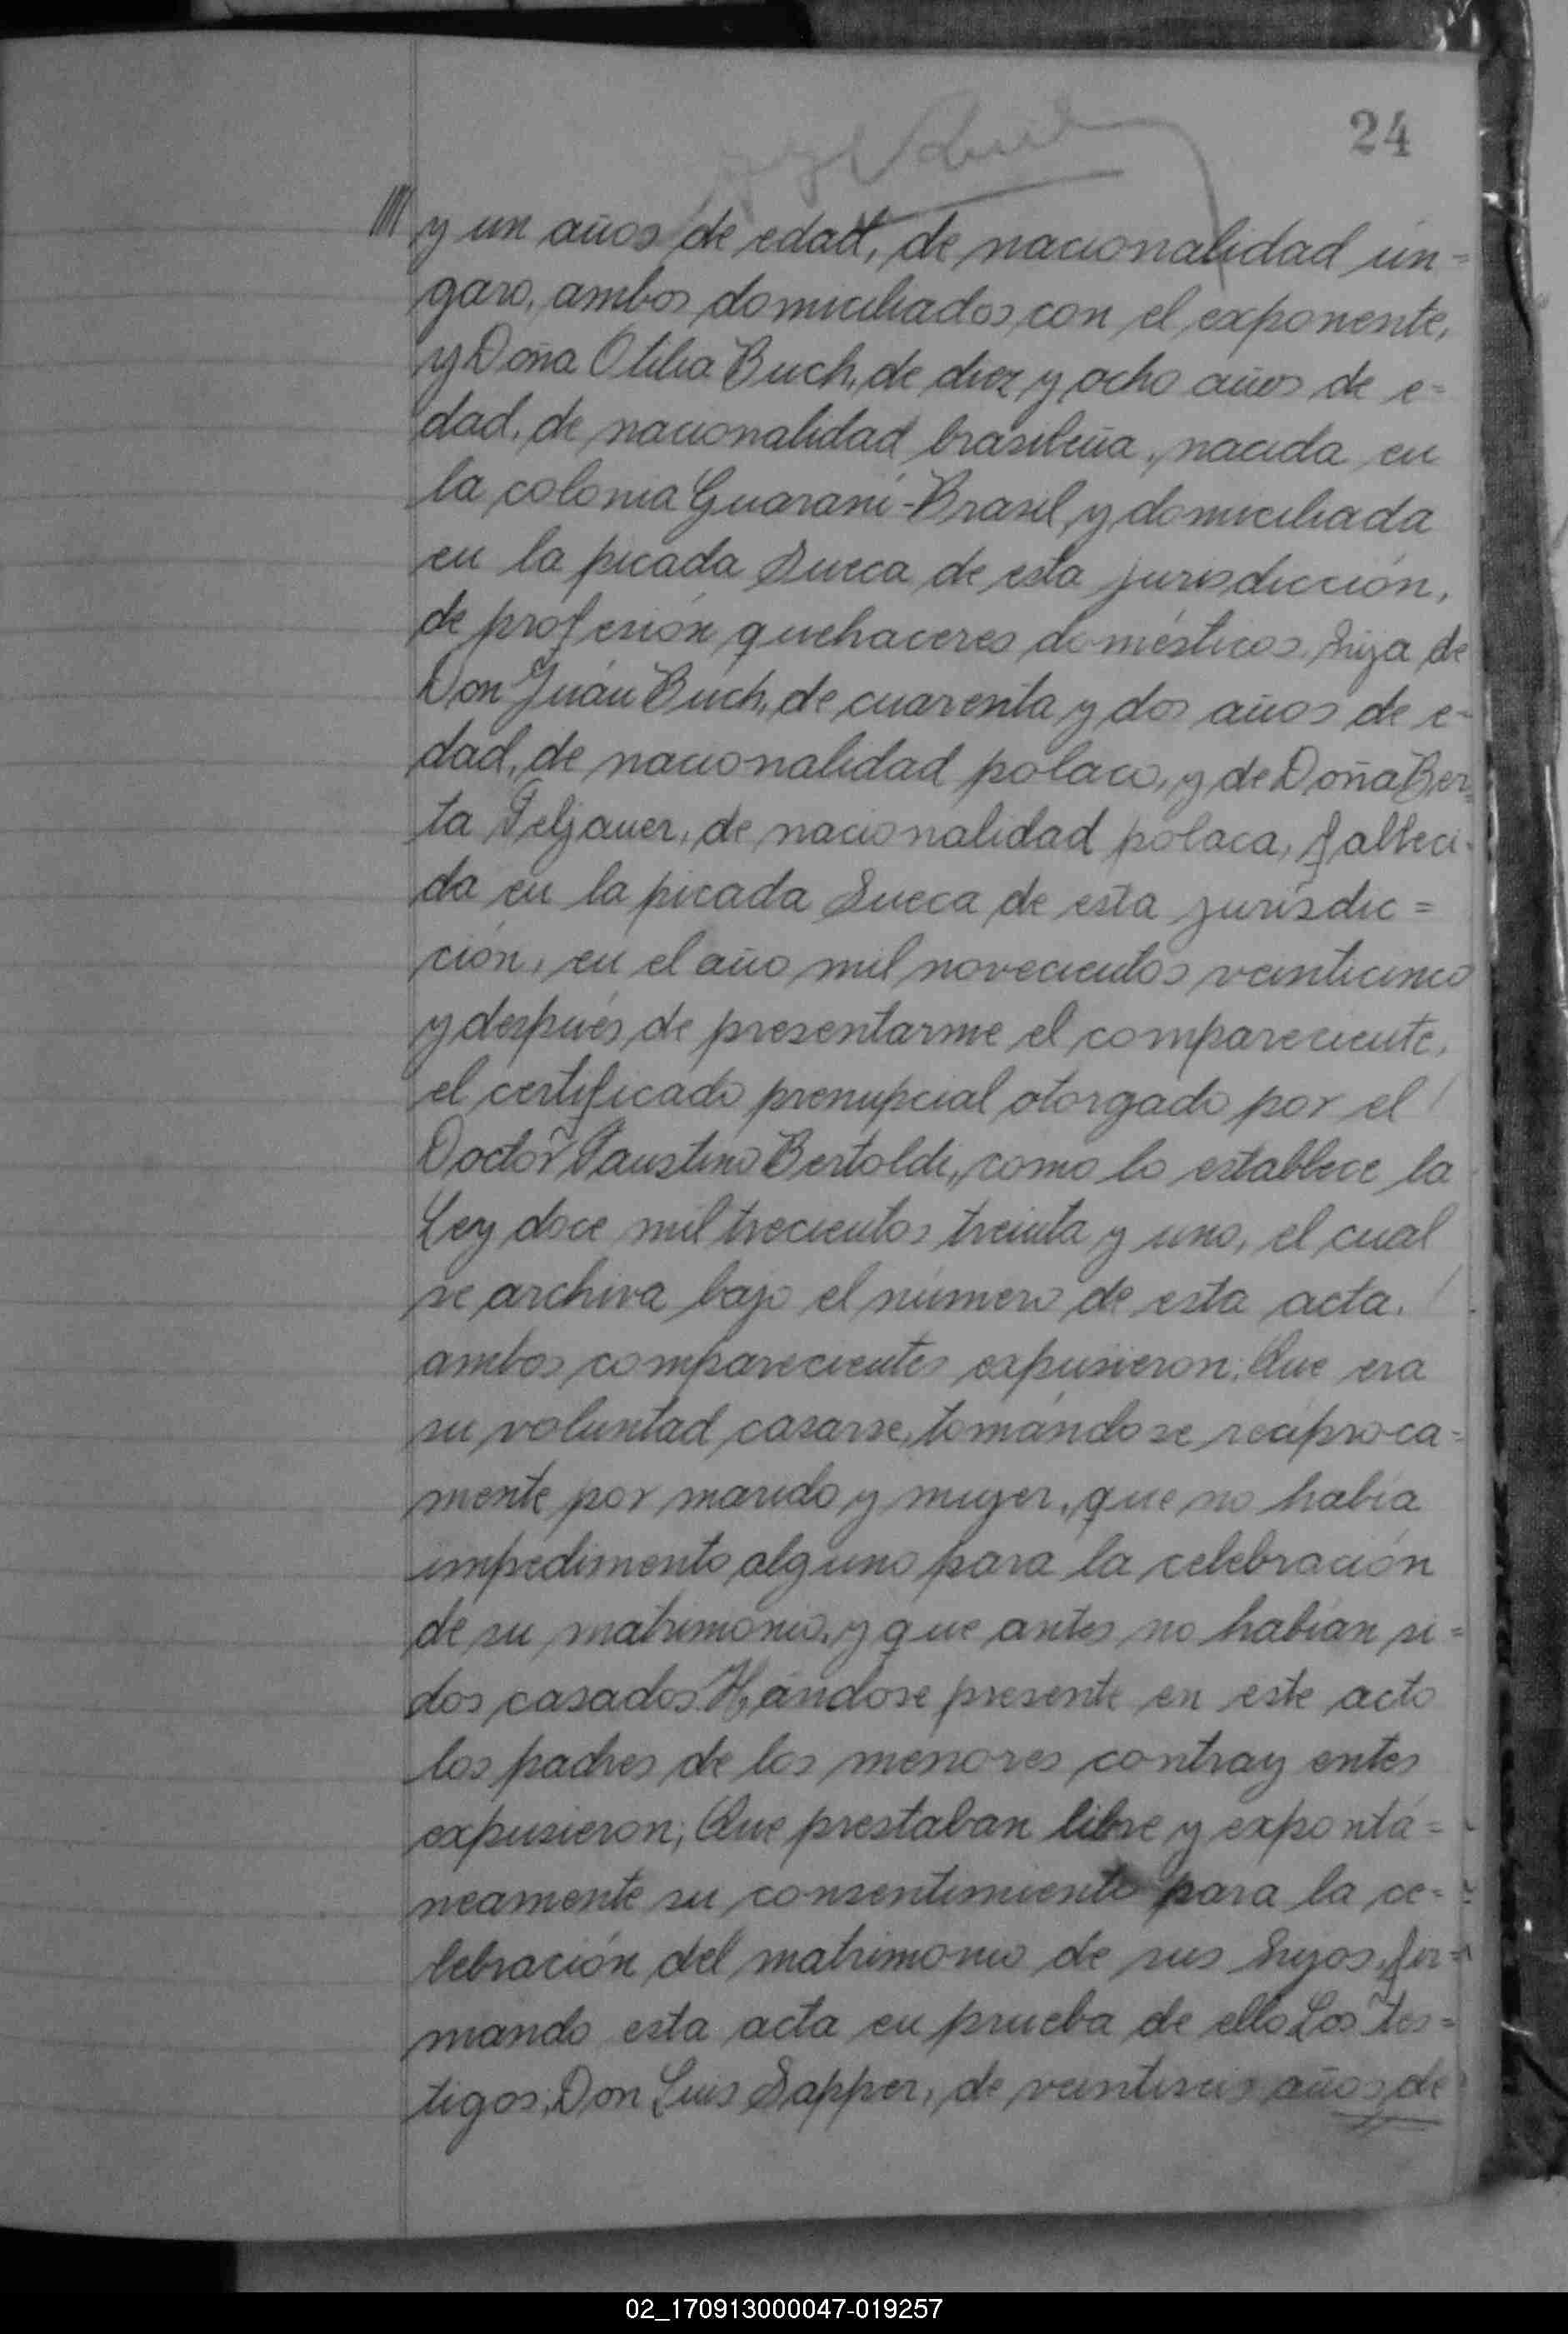 24
y un años de edad, de nacionalidad ún=
garo, ambos domiciliados con el exponente,
y Doña Otilia Buch, de diez y ocho años de e=
dad, de nacionalidad brasileña, nacida en
la colonia Guaraní-Brasil y domiciliada
en la picada Sueca de esta jurisdicción,
de profesión quehaceres domésticos, hija de
Don Juán Buch, de cuarenta y dos años de e-
dad, de nacionalidad polaco, y de Doña Ber=
ta Feljauer, de nacionalidad polaca, falleci-
da en la picada Sueca de esta jurisdic=
ción, en el año mil novecientos veinticinco
y después de presentarme el compareciente,
el certificado prenupcial otorgado por el
Doctor Faustino Bertoldi, como lo establece la
Ley doce mil trecientos treinta y uno, el cual
se archiva bajo el número de esta acta.
ambos comparecientes expusieron: Que era
su voluntad casarse, tomándose recíproca=
mente por marido y mujer, que no había
impedimento alguno para la celebración
de su matrimonio, y que antes no habían si=
dos casados. Hándose presente en este acto
los padres de los menores contrayentes
expusieron; Que prestaban libre y expontá=
neamente su consentimiento para la ce=
lebración del matrimonio de sus hijos, fir=
mando esta acta en prueba de ello Los Tes=
tigos, Don Luis Sapper, de veintiseis años de
02_170913000047-019257